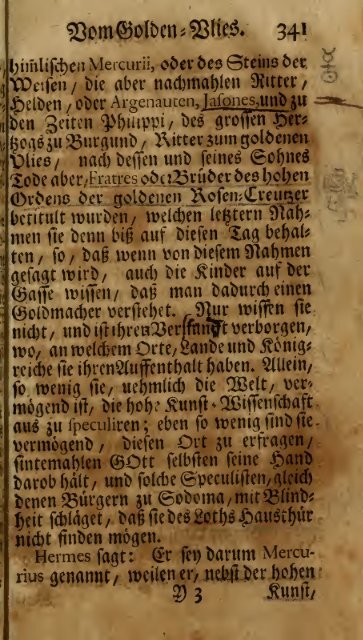 Vom Golden-Vlies. 341
himlischen Mercurii, oder des Steins der
Weisen, die aber nachmahlen Ritter,
Helden, oder Argenauten, Jasones, und zu
den Zeiten Philippi, des grossen Her-
zogs zu Burgund, Ritter zum goldenen
Vlies, nach dessen und seines Sohnes
Tode aber, Fratres oder Brüder des hohen
Ordens der goldenen Rosen-Creutzer
betitult wurden, welchen letztern Nah-
men sie denn biß auf diesen Tag behal-
ten, so, daß wenn von diesem Nahmen
gesagt wird, auch die Kinder auf der
Gasse wissen, daß man dadurch einen
Goldmacher verstehet. Nur wissen sie
nicht, und ist ihren Verstandt verborgen,
wo, an welchem Orte, Lande und König-
reiche sie ihren Auffenthalt haben. Allein,
so wenig sie, uehmlich die Welt, ver-
mögend ist, die hohe Kunst-Wissenschaft
aus zu speculiren; eben so wenig sind sie
vermögend, diesen Ort zu erfragen,
sintemahlen GOtt selbsten seine Hand
darob hält, und solche Speculisten, gleich
denen Bürgern zu Sodoma, mit Blind-
heit schläget, daß sie des Loths Hausthür
nicht finden mögen.
Hermes sagt: Er sey darum Mercu-
rius genannt, weilen er, nebst der hohen
Y 3 Kunst,